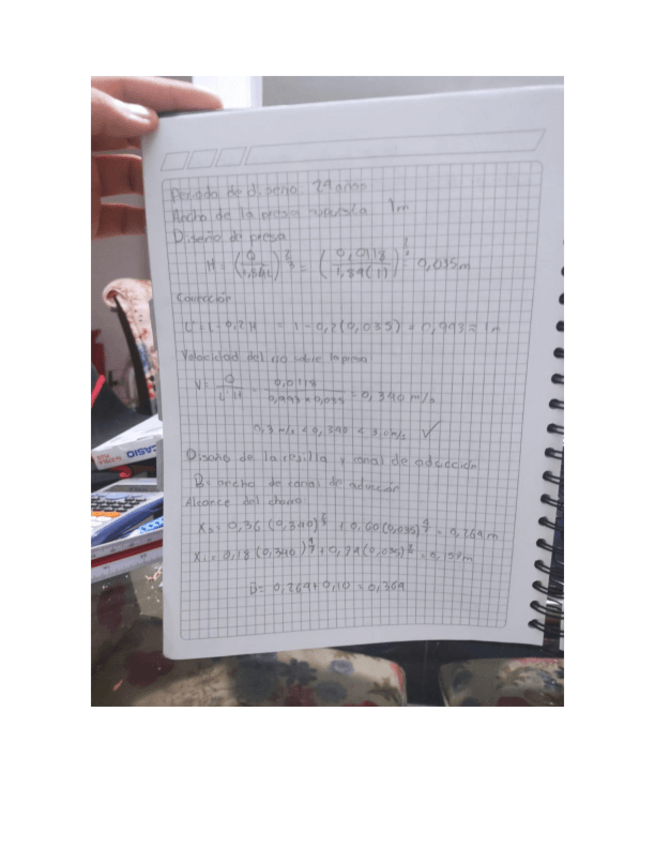 Periodo de diseño 24 años
Ancho de la presa supuesta 1m
Diseño de presa
H = (Q / 1,84L)^2/3 = (0,0118 / 1,84(1))^2/3 = 0,035 m
Corrección
L' = L - 0,2 H = 1 - 0,2(0,035) = 0,993 ≈ 1m
Velocidad del rio sobre la presa
V = Q / L'H = 0,0118 / 0,993 x 0,035 = 0,340 m/s
0,3 m/s < 0,340 < 3,0 m/s ✓
Diseño de la rejilla y canal de aducción
B = ancho de canal de aducción
Alcance del chorro:
Xs = 0,36 (0,340)^2/3 + 0,60 (0,035)^4/7 = 0,264 m
Xi = 0,18 (0,340)^4/7 + 0,74 (0,035)^3/4 =
B = 0,264 + 0,10 = 0,364
CASIO